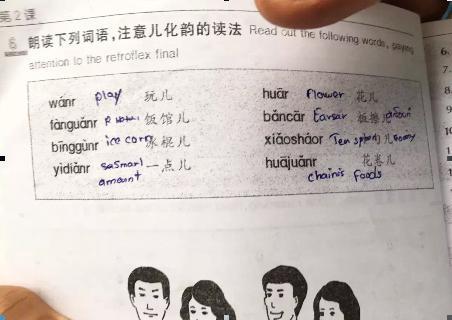 第2课
6 朗读下列词语,注意儿化韵的读法 Read out the following words, paying
attention to the retroflex final
wánr play 玩儿 huār Flower 花儿
fànguǎnr 饭馆儿 bǎncār 板擦儿
bīnggùnr ice 冰棍儿 xiǎosháor 儿
yìdiǎnr amount 一点儿 huājuǎnr 花卷儿
foods
6.
7.
8.
9.